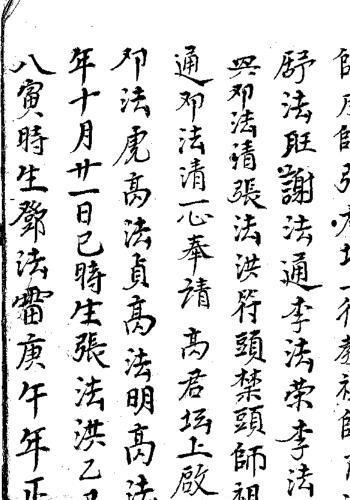 師
舒法旺謝法通李法荣李法
與邓法清張法洪符頭禁頭師祖
通邓法清一心奉請高君坛上啟
邓法虎高法貞高法明高法
年十月廿一日巳時生張法洪乙
八寅時生鄧法雷庚午年正